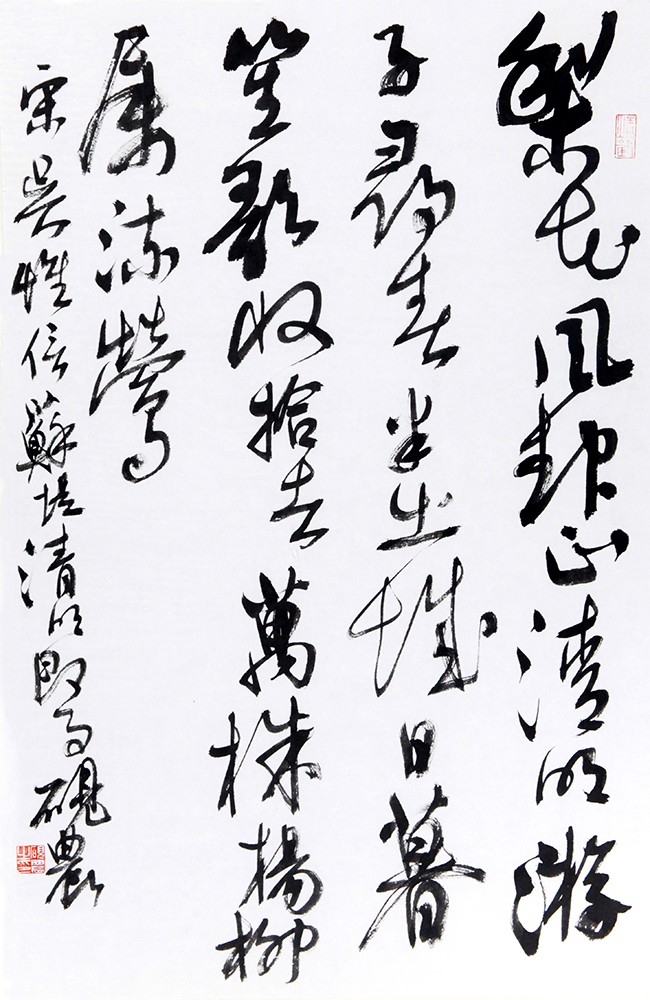 梨花風起正清明游
子尋春半出城日暮
笙歌收拾去萬株楊柳
属流鶯
宋吳惟信蘇堤清明即事硯農